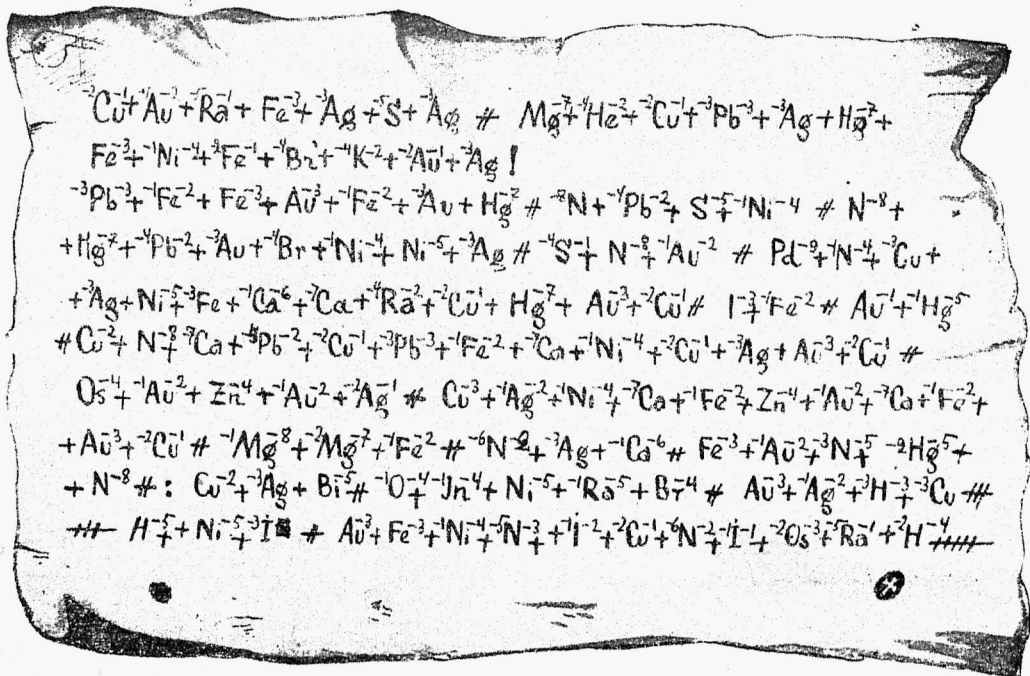 ⁻²Cu⁻¹+⁻¹Au⁻²+⁻⁵Ra⁻¹+Fe⁻³+⁻³Ag+⁻⁵S+⁻³Ag # Mg⁻⁷+⁻⁴He⁻²+⁻²Cu⁻¹+⁻³Pb⁻³+⁻³Ag+Hg⁻⁷+
Fe⁻³+⁻¹Ni⁻⁴+⁻²Fe⁻¹+⁻⁴Br¹+⁻⁴K⁻²+⁻²Au⁻¹+⁻³Ag!
⁻³Pb⁻³+⁻¹Fe⁻²+Fe⁻³+Au⁻³+⁻¹Fe⁻²+⁻³Au+Hg⁻⁷#⁻⁸N+⁻⁴Pb⁻²+S⁻⁵+⁻¹Ni⁻⁴ # N⁻⁸+
+Hg⁻⁷+⁻⁴Pb⁻²+⁻³Au+⁻⁴Br+⁻¹Ni⁻⁴+Ni⁻⁵+⁻³Ag#⁻⁴S⁻¹+N⁻⁸+⁻¹Au⁻² # Pd⁻⁹+⁻¹N⁻⁴+⁻³Cu+
+⁻³Ag+Ni⁻⁵+⁻³Fe+⁻¹Ca⁻⁶+⁻⁷Ca+⁻⁴Ra⁻²+⁻²Cu⁻¹+Hg⁻⁷+Au⁻³+⁻²Cu⁻¹# I⁻³+⁻¹Fe⁻² # Au⁻¹+⁻¹Hg⁻⁵
#Cu⁻²+N⁻⁸+⁻⁷Ca+⁻⁴Pb⁻²+⁻²Cu⁻¹+⁻³Pb⁻³+⁻¹Fe⁻²+⁻⁷Ca+⁻¹Ni⁻⁴+⁻²Cu⁻¹+⁻³Ag+Au⁻³+⁻²Cu⁻¹ #
Os⁻⁴+⁻¹Au⁻²+Zn⁻⁴+⁻¹Au⁻²+⁻²Ag⁻¹ # Cu⁻³+⁻¹Ag⁻²+⁻¹Ni⁻⁴+⁻⁷Ca+⁻¹Fe⁻²+Zn⁻⁴+⁻¹Au⁻²+⁻⁷Ca+⁻¹Fe⁻²+
+Au⁻³+⁻²Cu⁻¹ # ⁻¹Mg⁻⁸+⁻²Mg⁻⁷+⁻¹Fe⁻² #⁻⁶N⁻²+⁻³Ag+⁻¹Ca⁻⁶# Fe⁻³+⁻¹Au⁻²+⁻³N⁻⁵+⁻²Hg⁻⁵+
+N⁻⁸#: Cu⁻²+⁻³Ag+Bi⁻⁵#⁻¹O⁻⁴+⁻¹Jn⁻⁴+Ni⁻⁵+⁻¹Ra⁻⁵+Br⁻⁴ # Au⁻³+⁻¹Ag⁻²+⁻³H⁻³+⁻³Cu #
# H⁻⁵+Ni⁻⁵+⁻³I # Au⁻³+Fe⁻³+⁻¹Ni⁻⁴+⁻⁵N⁻³+⁻¹I⁻²+⁻²Cu⁻¹+⁻⁶N⁻²+⁻¹I⁻¹+⁻²Os⁻³+⁻⁵Ra⁻¹+⁻²H⁻⁴ #